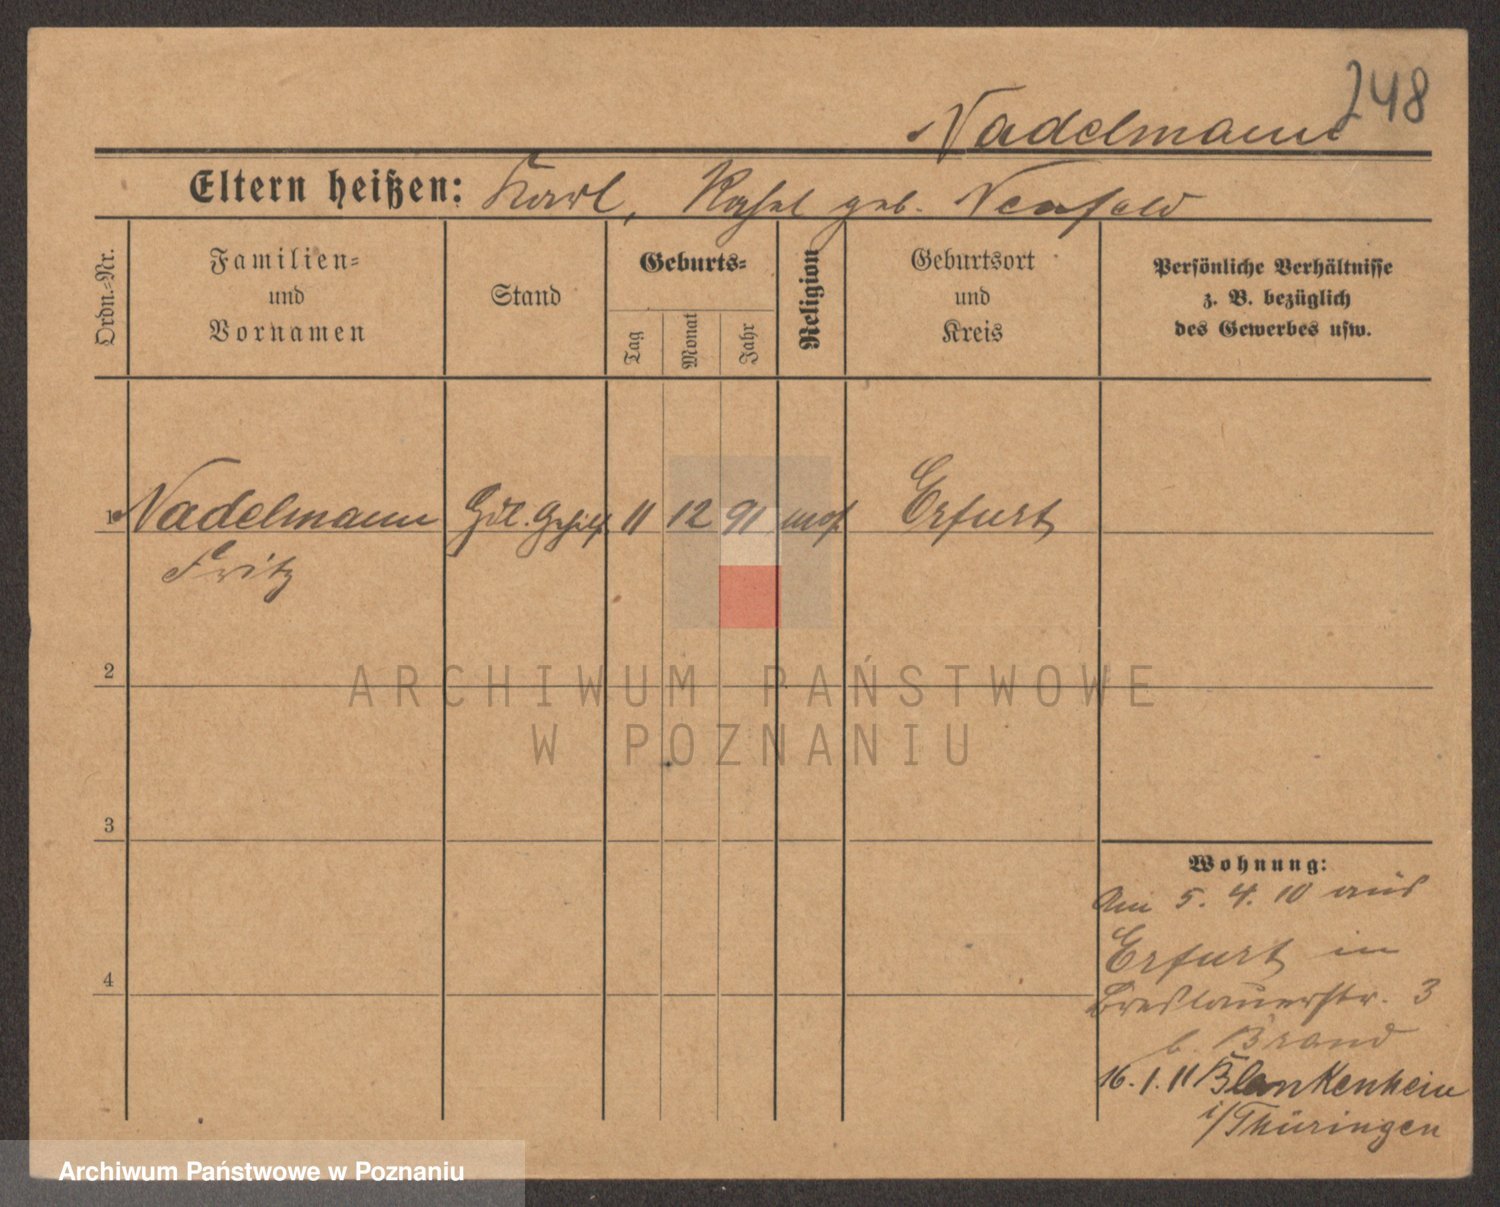 248
Nadelmann
Eltern heißen: Karl, Rahel geb. Neufeld
Ordn.=Nr.
Familien=
und
Vornamen
Stand
Geburts=
Tag
Monat
Jahr
Religion
Geburtsort
und
Kreis
Persönliche Verhältnisse
z. B. bezüglich
des Gewerbes usw.
1 Nadelmann 11 12 91 mos. Erfurt
Fritz
2
3
4
Wohnung:
Am 5. 4. 10 aus
Erfurt in
Breslauerstr. 3
b. Brand
16. 1. 11 Blankenhein
i/Thüringen
ARCHIWUM PAŃSTWOWE
W POZNANIU
Archiwum Państwowe w Poznaniu